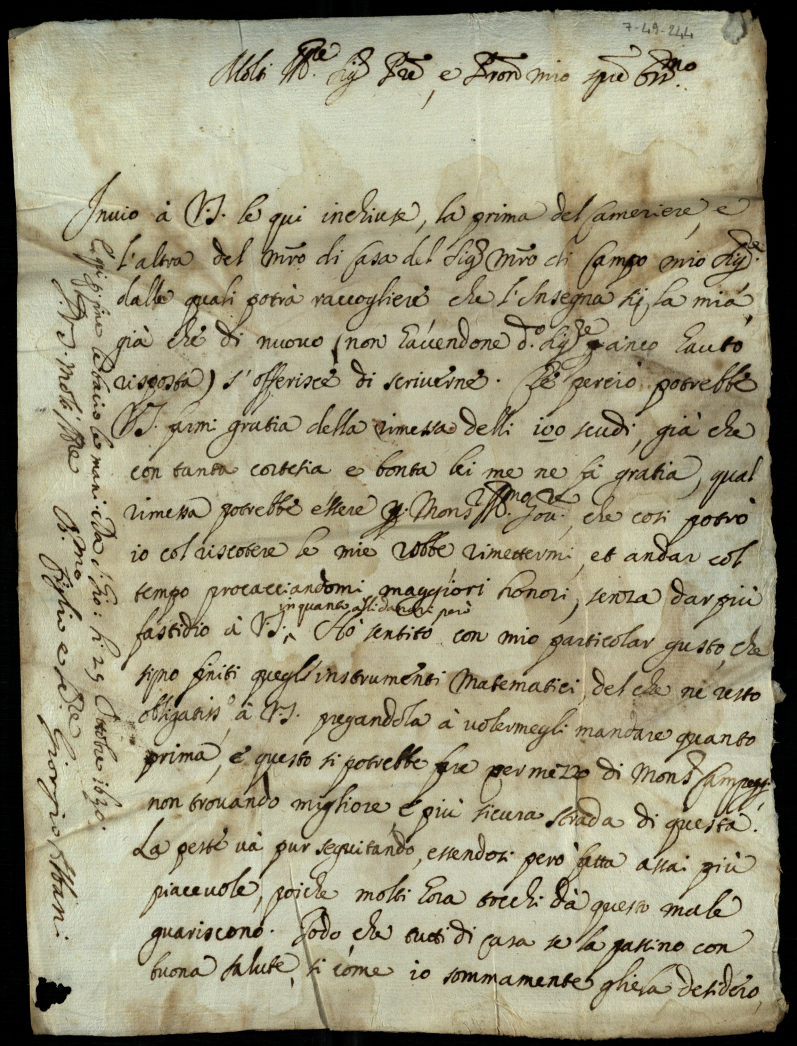 7-49-244
Molt' Ill.re Sig.r P're, e P'ron mio sp're Oss.mo
Invio à V.S. le qui inchiuse, la prima del Cameriere, e
l'altra del m'ro di casa del Sig.r M'ro di Campo mio Sig.re
dalle quali potrà raccogliere che l'Insegna sij la mia,
già che di nuovo (non havendone d.o Sig.re p anco hauto
risposta) s'offerisce di scriverne. E perciò potrebbe
V.S. farmi gratia della rimessa delli 100 scudi, già che
con tanta cortesia e bontà lei me ne fà gratia, qual
rimessa potrebbe essere p. Mons.r Ill.mo Gov.re, che così potrò
io col riscotere le mie robbe, rimettermi, et andar col
tempo procacciandomi maggiori honori, senza dar più
fastidio à V.S. in quanto alli danari però Hò sentito con mio particolar gusto, che
sijno finiti quegl'instrumenti Matematici, del che ne resto
obligatiss.o à V.S. pregandola à volermegli mandare quanto
prima, e questo si potrebbe fare per mezzo di Mons.r Campeggi,
non trovando migliore e più sicura strada di questa.
La peste và pur seguitando, essendosi però fatta assai più
piacevole, poiche molti hora tocchi dà questo male
guariscono. Godo che tutti di casa se la passino con
buona salute, si come io sommamente gliela desidero,
e qui p fine le bacio le mani. Da li 29 Ottobre 1630.
D. V.S. Molt' Ill.re
Aff.mo Figlio e Se.re Giorgio Albani